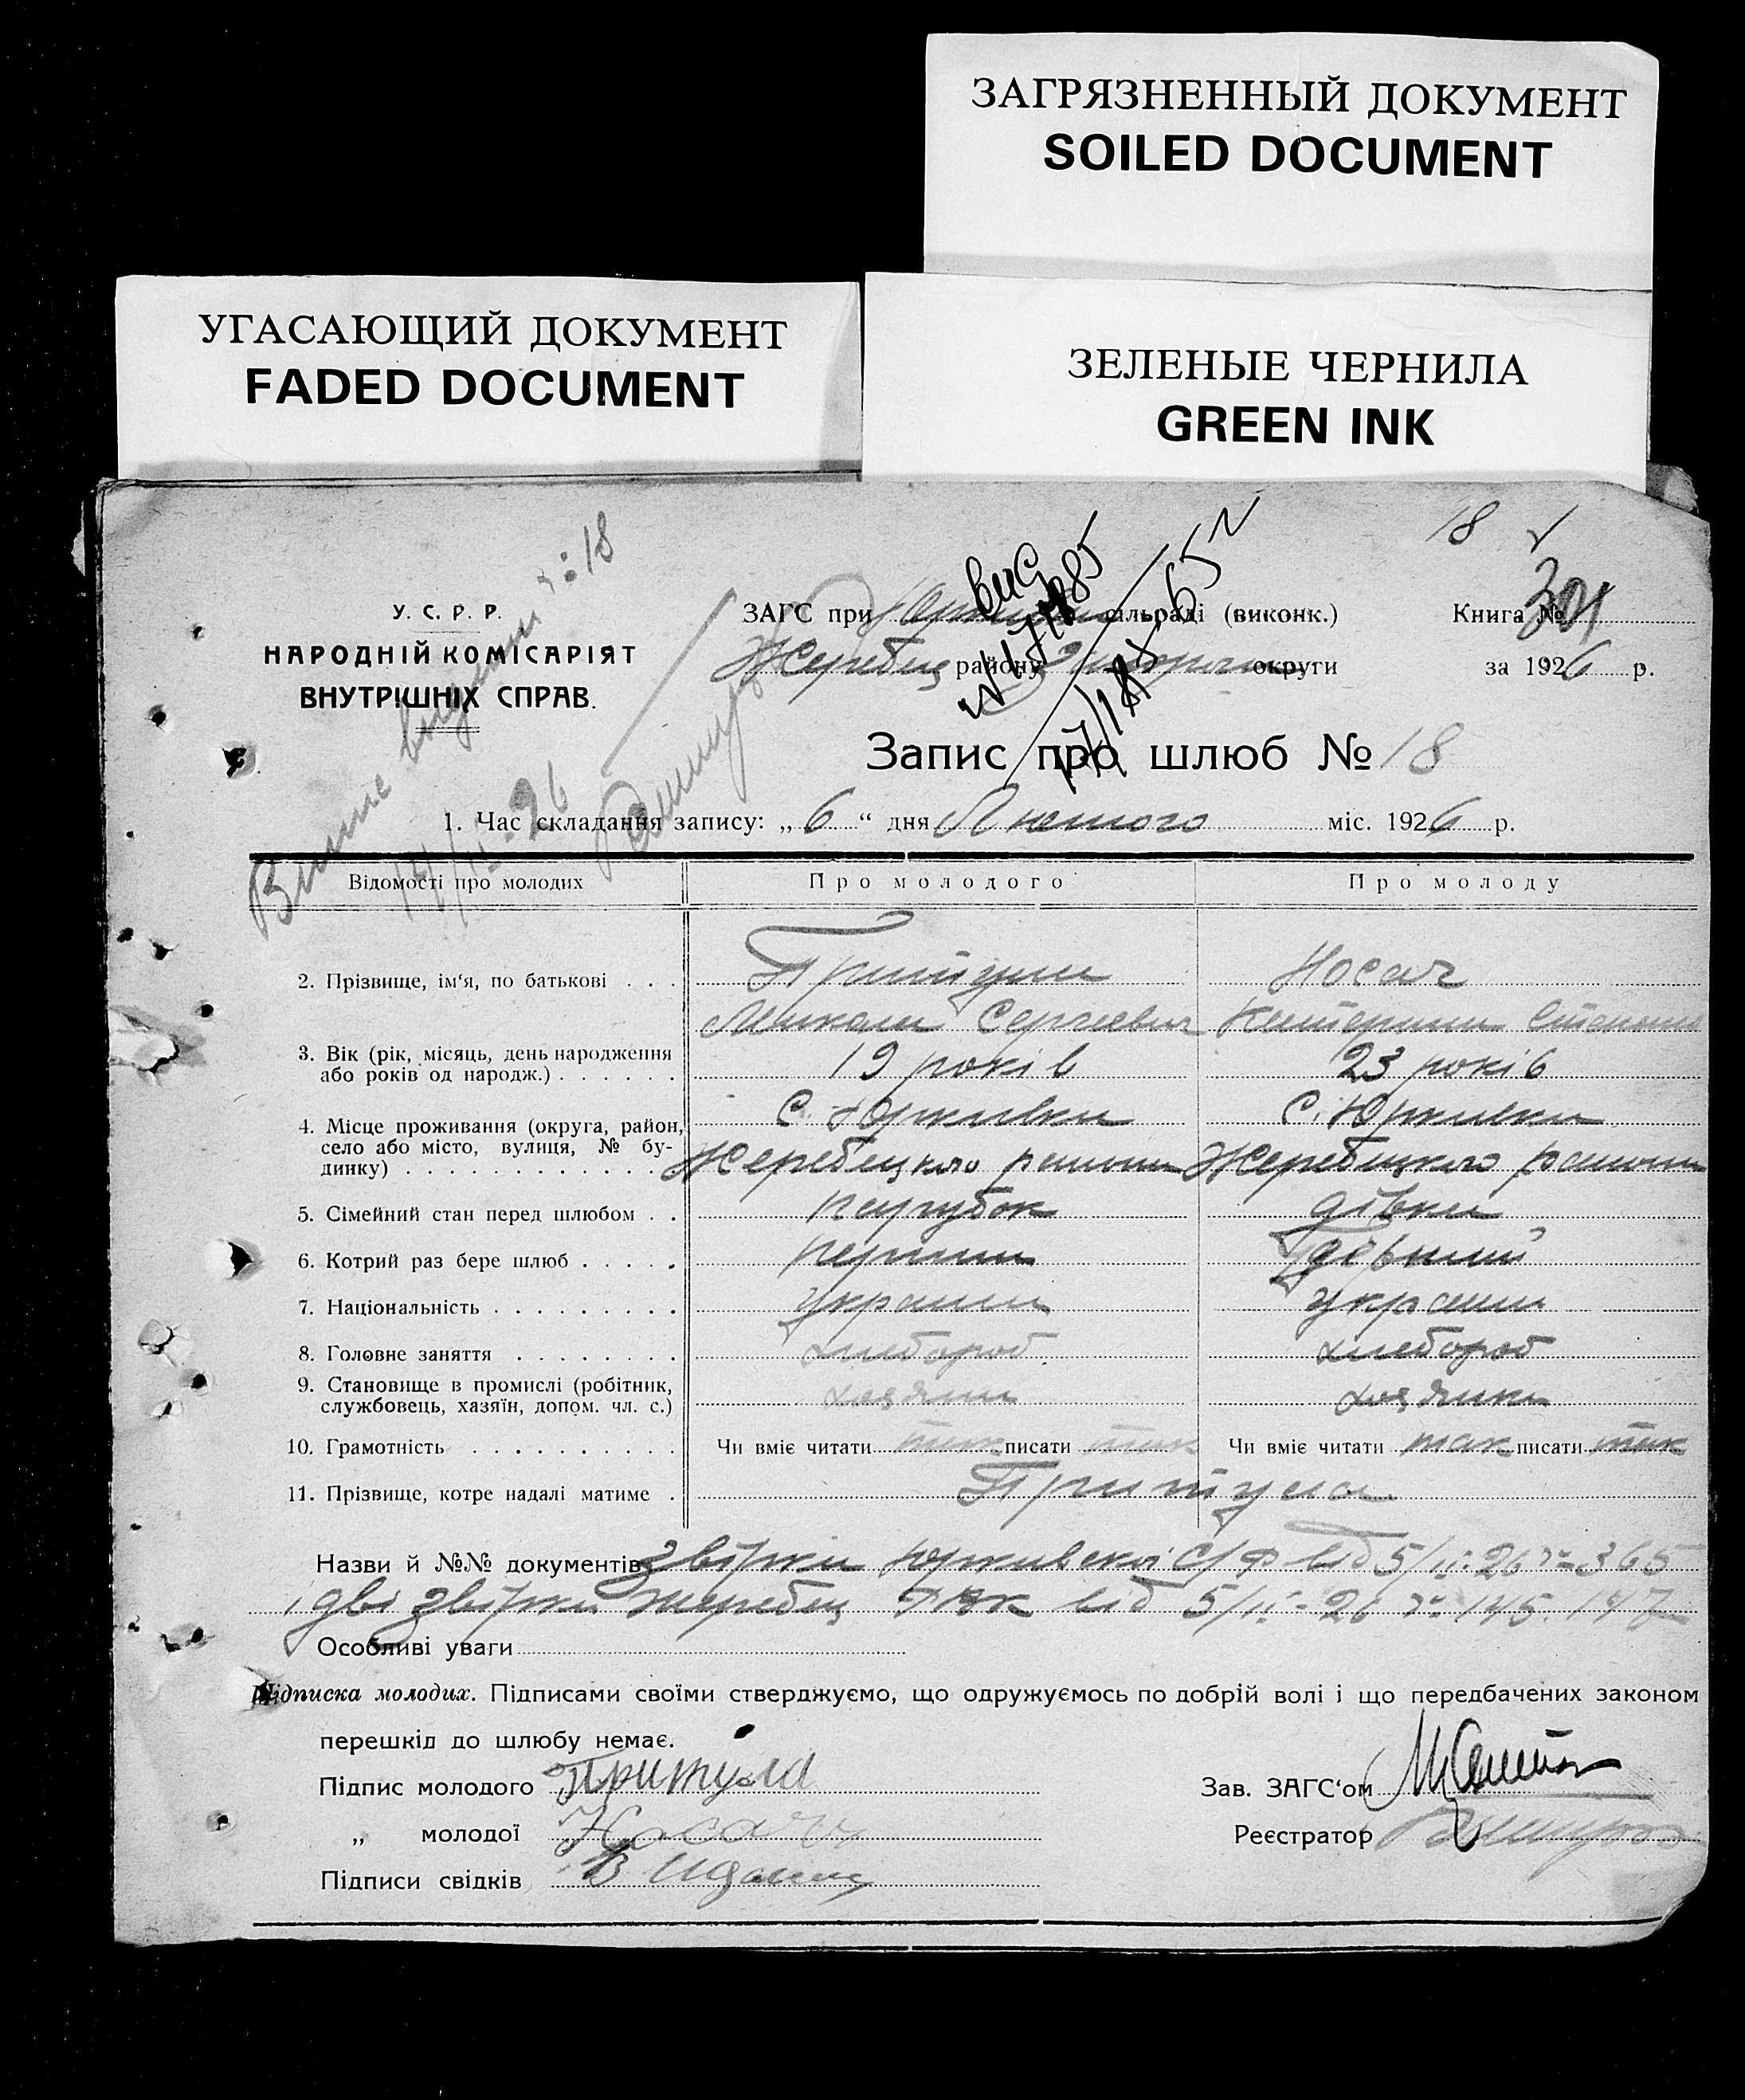 ЗАГРЯЗНЕННЫЙ ДОКУМЕНТ
SOILED DOCUMENT
УГАСАЮЩИЙ ДОКУМЕНТ
FADED DOCUMENT
ЗЕЛЕНЫЕ ЧЕРНИЛА
GREEN INK
18
У. С. Р. Р.
НАРОДНІЙ КОМІСАРІЯТ
ВНУТРІШНІХ СПРАВ.
ЗАГС при сільраді (виконк.)
Книга №
Жеребец району округи
за 1926 р.
Запис про шлюб № 18
1. Час складання запису: „ 6 “ дня Лютого міс. 1926 р.
Відомості про молодих Про молодого Про молоду
2. Прізвище, ім‘я, по батькові . . . Притула Носач
Микола Сергеевич Катерина
3. Вік (рік, місяць, день народження
або років од народж.) . . . . . . 19 років 23 років
4. Місце проживання (округа, район, с. Юрківка с. Юрківка
село або місто, вулиця, № бу-
динку) . . . . . . . . . . . . Жеребецкого района Жеребецкого района
5. Сімейний стан перед шлюбом . . парубок дівка
6. Котрий раз бере шлюб . . . . . перший перший
7. Національність . . . . . . . . . україн україн
8. Головне заняття . . . . . . . . хлебороб хлебороб
9. Становище в промислі (робітник,
службовець, хазяїн, допом. чл. с.) хозяин хозяика
10. Грамотність . . . . . . . . . . Чи вміє читати так писати так Чи вміє читати так писати так
11. Прізвище, котре надалі матиме . Притула
Назви й №№ документів Звірки Юрківскої С/Р від 5/II-26 № 365
і дві звірки Жеребец РВК від 5/II-26 № 145. 147
Особливі уваги
Підписка молодих. Підписами своїми стверджуємо, що одружуємось по добрій волі і що передбачених законом
перешкід до шлюбу немає.
Підпис молодого Притула
Зав. ЗАГС‘ом
„ молодої Носач
Реєстратор
Підписи свідків